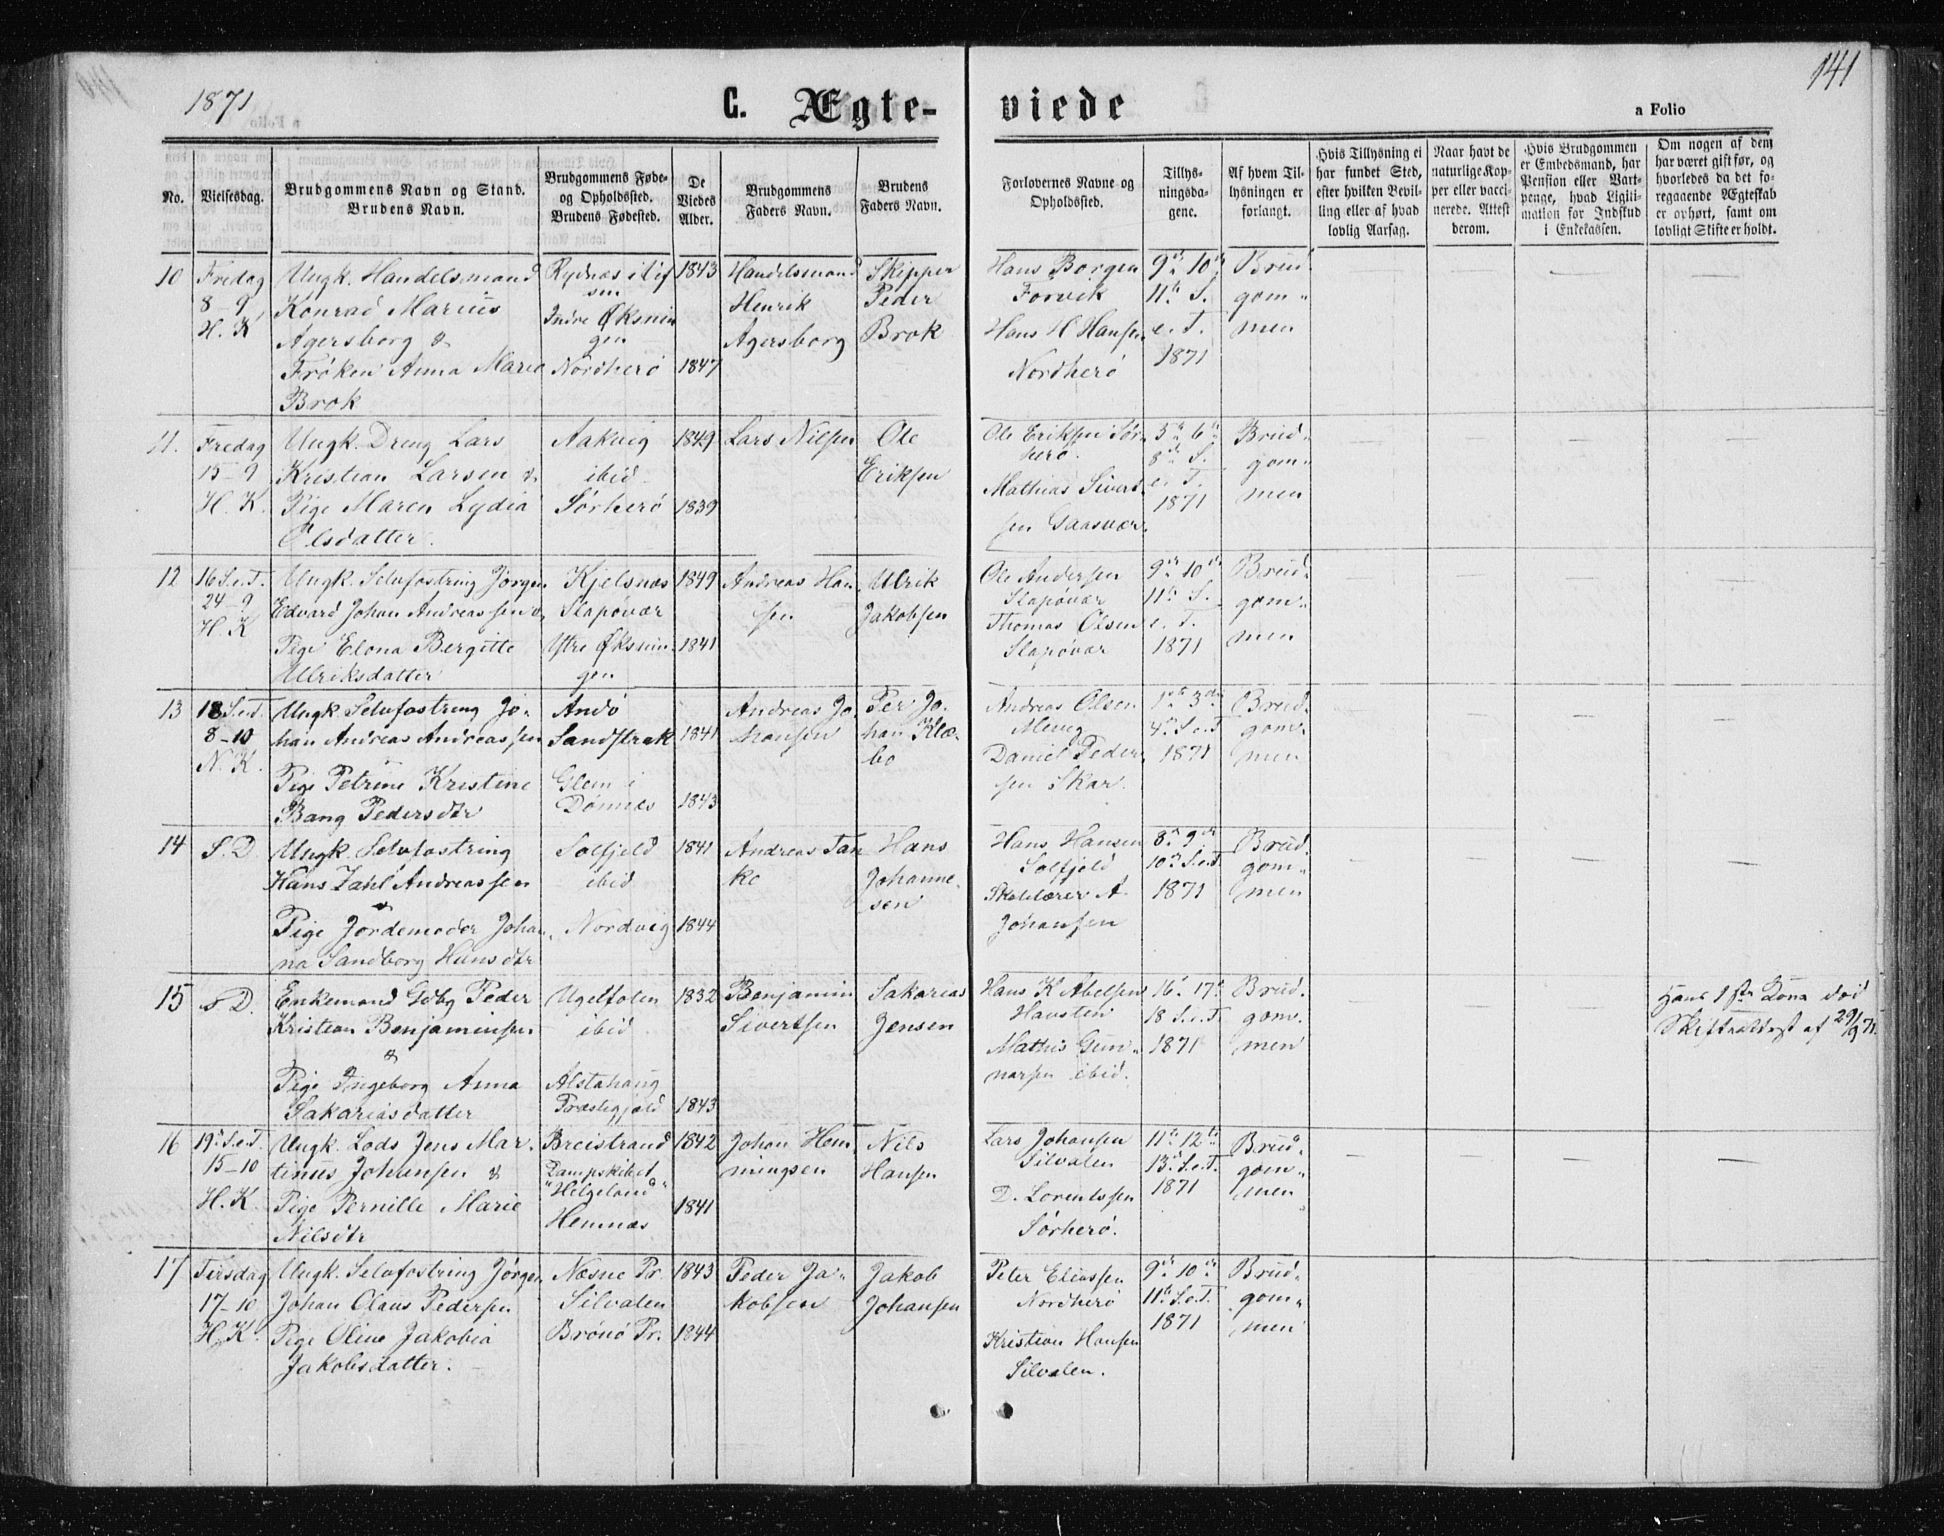 1871
C. Ægte-
viede
a Folio
141
No.
Vielsesdag.
Brudgommens Navn og Stand.
Brudens Navn.
Brudgommens Føde-
og Opholdssted.
Brudens Fødested.
De
Viedes
Alder.
Brudgommens
Faders Navn.
Brudens
Faders Navn.
Forlovernes Navne og
Opholdssted.
Tillys-
ningsda-
gene.
Af hvem Til-
lysningen er
forlangt.
Hvis Tillysning ei
har fundet Sted,
efter hvilken Bevil-
ling eller af hvad
lovlig Aarsag.
Naar havt de
naturlige Kop-
per eller vacci-
nerede. Attest
derom.
Hvis Brudgommen
er Embedsmand, har
Pension eller Vart-
penge, hvad Ligiti-
mation for Indskud
i Enkekassen.
Om nogen af dem
har været gift før, og
hvorledes da det fo-
regaaende Ægteskab
er ophørt, samt om
lovligt Skifte er holdt.
10
Fredag
8-9
H. K.
Ungk. Handelsmand
Konrad Marius
Agersborg &
Frøken Anna Marie
Brok
Rydnæs i
Indre Øksnin
gen
Nordherø
1843
1847
Handelsmand
Henrik
Agersborg
Skipper
Peder
Brok
Hans Borgen
Forvik
Hans H Hansen
Nordherø
9de 10de
11te S.
e. T.
1871
Brud-
gom-
men
11.
Fredag
15-9
H. K.
Ungk. Dreng Lars
Kristian Larsen &
Pige Maren Lydia
Olsdatter.
Aakvig
ibid.
Sørherø
1849
1839
Lars Nilsen
Ole
Eriksen
Ole Eriksen Sør-
herø.
Mathias Sivert-
sen Gaasvær.
5te 6te
8de S.
e. T.
1871
Brud-
gom-
men
12
16 S. e. T.
24-9
H. K
Ungk. Selvfostring Jørgen
Edvard Johan Andreassen &
Pige Elona Bergitte
Ulriksdatter
Kjelsnæs
Slapøvær
Ytre Øksnin-
gen
1849
1841
Andreas Han
sen
Ulrik
Jakobsen
Ole Andersen
Slapøvær
Thomas Olsen
Slapøvær
9de 10de
11te S.
e. T.
1871
Brud-
gom-
men
13
18 S. e. T.
8-10
N. K.
Ungk. Selvfostring Jo-
han Andreas Andreassen
Pige Petrine Kristine
Bang Pedersdtr
Andø
Sandstrak
Glein i
Dønnæs
1841
1843
Andreas Jo-
hansen
Per Jo-
han Klæ-
bo
Andreas Olsen
Daniel Peder-
sen Skar.
1ste 3die
4de S. e. T
1871
Brud-
gom-
men
14
S. D.
Ungk. Selvfostring
Hans Zahl Andreassen
&
Pige Jordemoder Johan-
na Sandborg Hansdtr
Solfjeld
ibid
Nordvig
1841
1844
Andreas Tan
ke
Hans
Johanne-
sen
Hans Hansen
Solfjeld
Skolelærer A.
Johansen
8de 9de
10de S. e. T.
1871
Brud-
gom-
men
15
S. D.
Enkemand Gdbg Peder
Kristian Benjaminsen
&
Pige Ingeborg Anna
Sakariasdatter
Ugeltoten
ibid
Alstahaug
Præstegjeld
1832
1843
Benjamin
Sivertsen
Sakarias
Jensen
Hans K Abelsen
Havsten
Mathis Gun-
narsen ibid.
16de 17de
18 S. e. T.
1871
Brud-
gom-
men
Hans 1ste Kona død
Skifteattest af 29/9 71.
16
19de S. e. T.
15-10
H. K.
Ungk. Lods Jens Mar-
tinus Johansen &
Pige Pernille Marie
Nilsdtr
Breistrand
Dampskibet
"Helgeland"
Hemnæs
1842
1841
Johan Hem
mingsen
Nils
Hansen
Lars Johansen
Silvalen
D. Lorentssen
Sørherø.
11te 12te
13de S. e. T.
1871
Brud-
gom-
men
17
Tirsdag
17-10
H. K.
Ungk. Selvfostring Jørgen
Johan Olaus Pedersen
Pige Oline Jakobia
Jakobsdatter.
Næsne Pr.
Silvalen
Brønø Pr.
1843
1844
Peder Ja-
kobsen
Jakob
Johansen
Peter Eliassen
Nordherø
Kristian Hansen
Silvalen.
9de 10de
11te S. e. T.
1871
Brud-
gom-
men